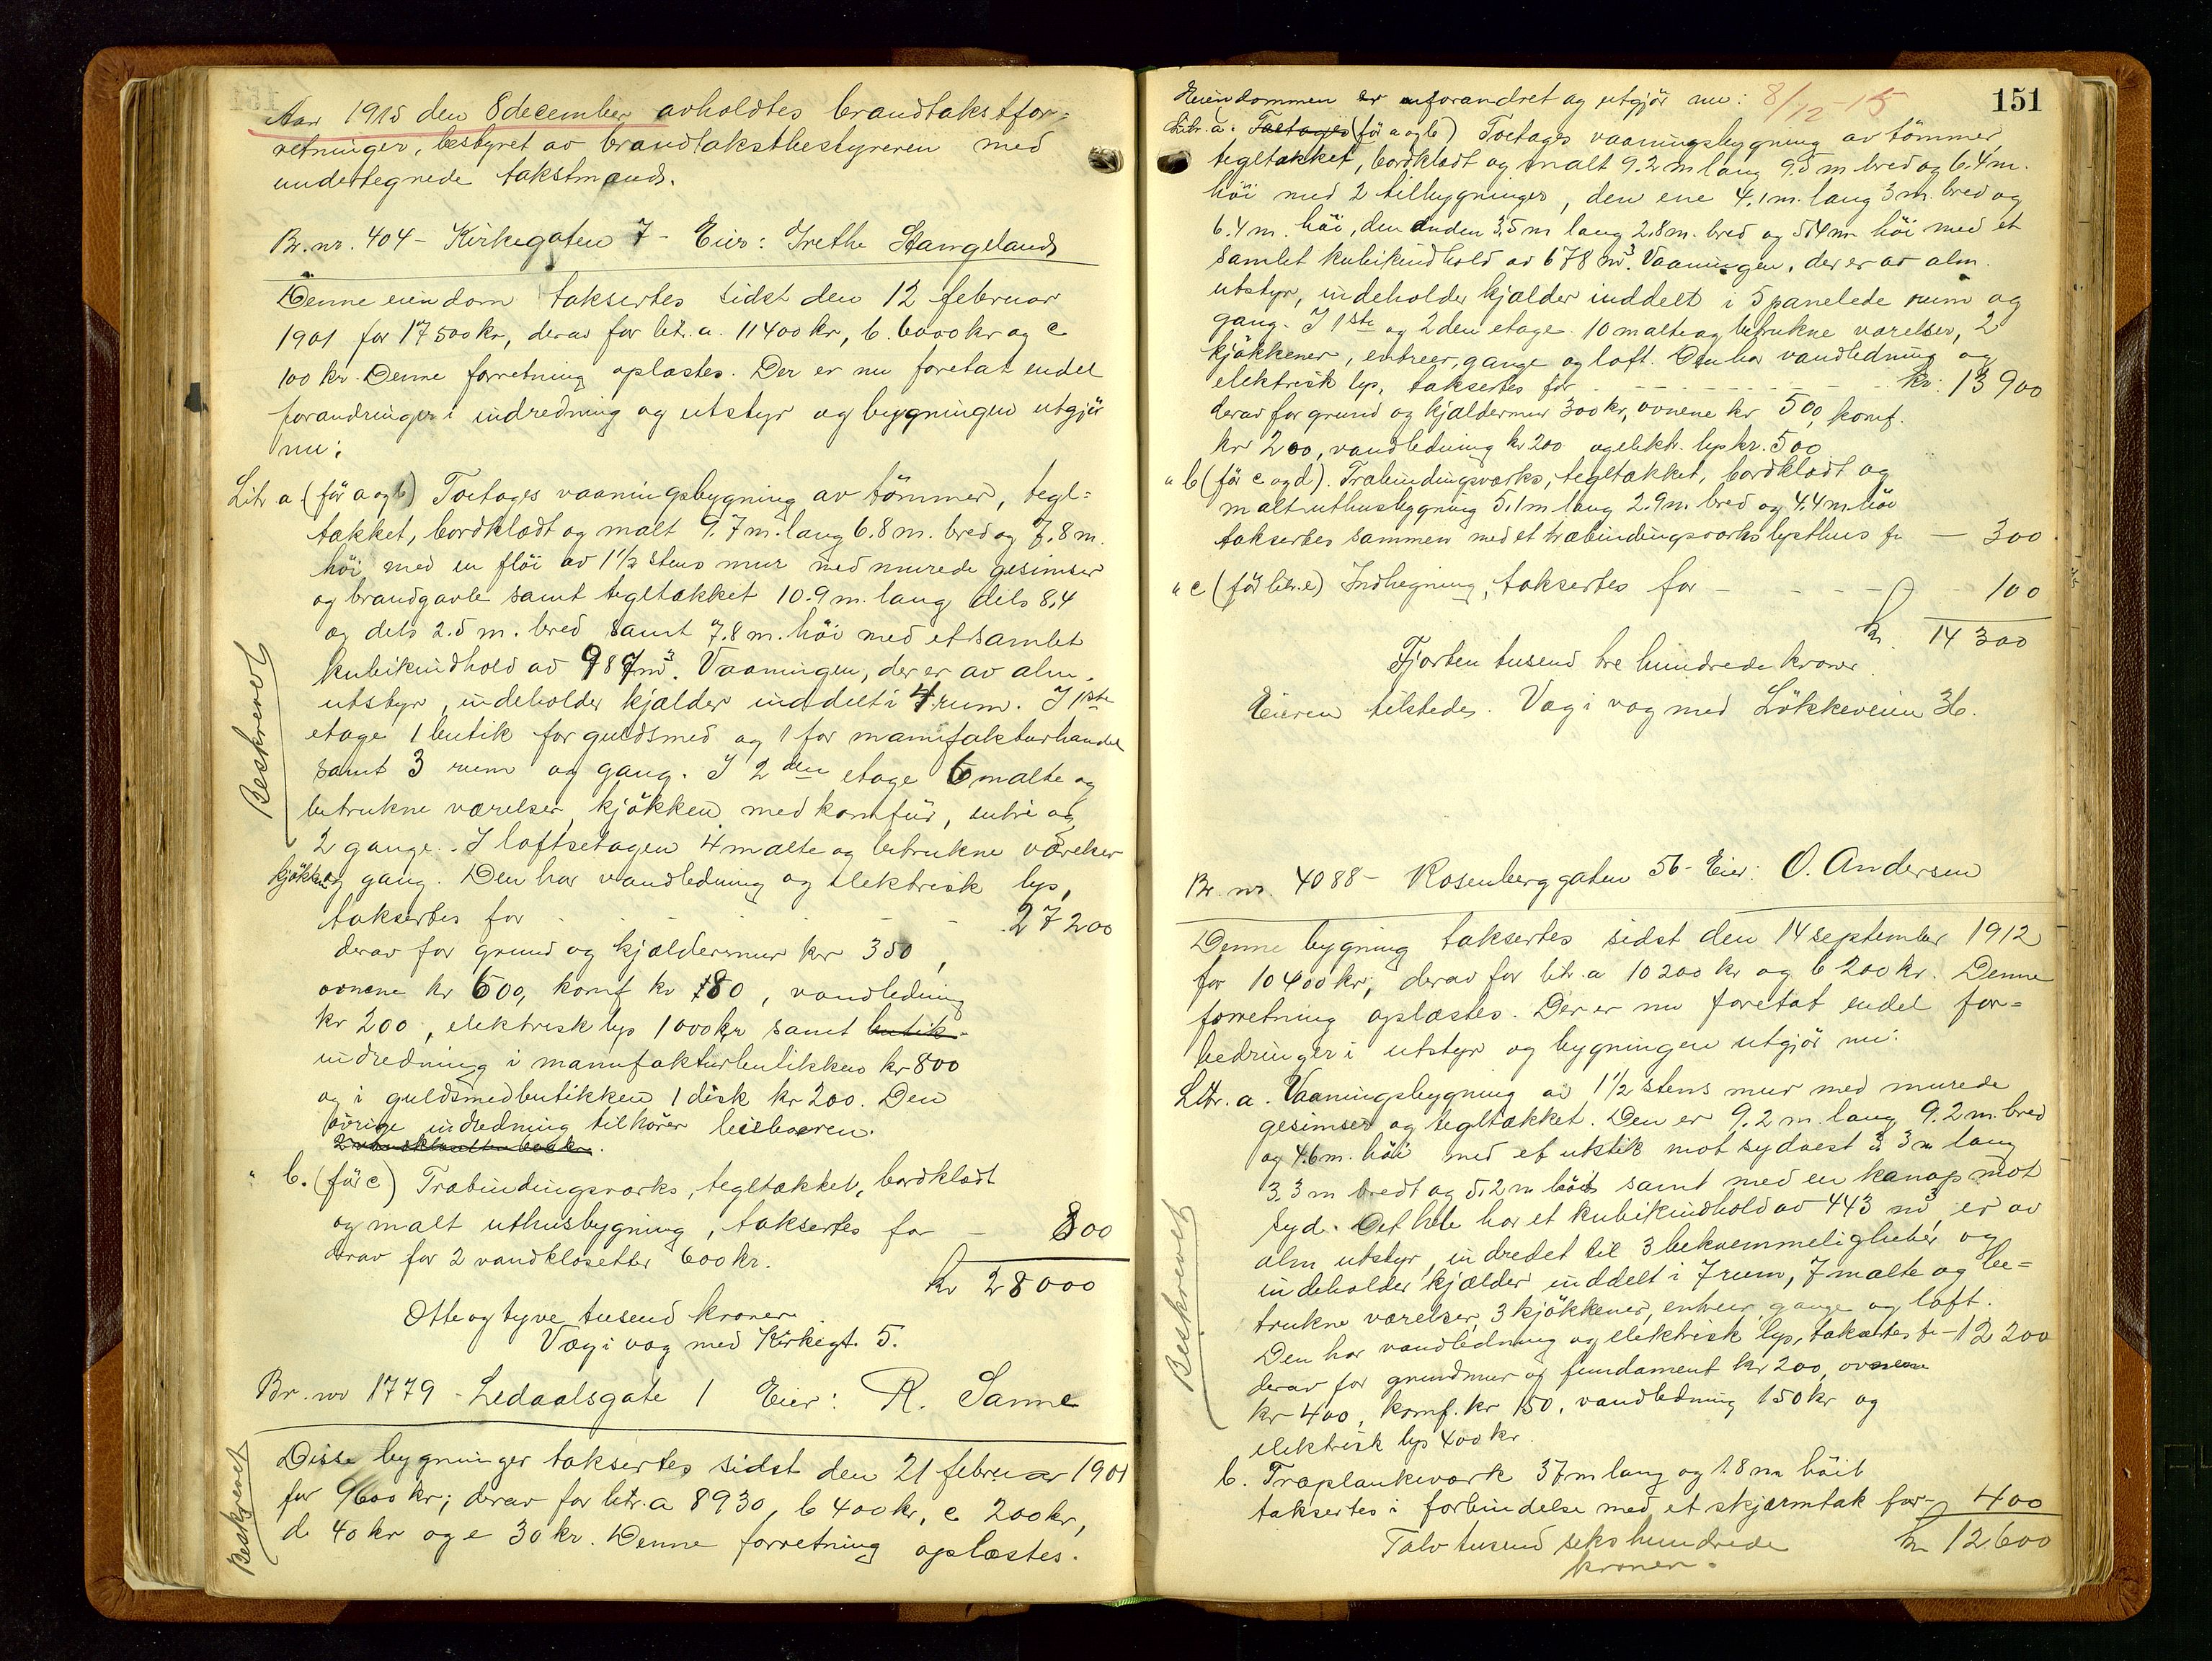 Aar 1915 den 8 december avholdtes brandtakstfor=
retninger, bestyret av brandtakstbestyreren med
undertegnede takstmænd.
Br. nr. 404 - Kirkegaten 7 - Eier: Grethe Stangeland
Denne eiendom taksertes sidst den 12 februar
1901 for 17500 kr, derav for litr. a. 11400 kr, b. 6000 kr og c
100 kr. Denne forretning oplæstes. Der er nu foretat endel
forandringer i indredning og utstyr og bygningen utgjör
nu:
Litr a (för a og b) Toetages vaaningsbygning av tömmer, tegl=
tækket, bordklædt og malt 9.7 m. lang 6.8 m. bred og 7.8 m.
höi med en flöi av 1½ stens mur med murede gesimser
og brandgavle samt tegltækket 10.9 m. lang dels 8.4
og dels 2.5 m. bred samt 7.8 m. höi med et samlet
kubikindhold av 987 m³. Vaaningen, der er av alm.
utstyr, indeholder kjælder inddelt i 4 rum. I 1ste
etage 1 butik for guldsmed og 1 for manufakturhandel
samt 3 rum og gang. I 2den etage 6 malte og
betrukne værelser, kjökken med komfür, entre og
2 gange. I loftsetagen 4 malte og betrukne værelser
kjökken og gang. Den har vandledning og elektrisk lys,
taksertes for - - - - - - 27200
derav for grund og kjældermur kr 350,
ovnene kr 600, komf kr 180, vandledning
kr 200, elektrisk lys 1000 kr samt butik-
indredning i manufakturbutikken kr 800
og i guldsmedbutikken 1 disk kr 200. Den
övrige indredning tilhörer leieboeren.
" b. (för c) Træbindingsverks, tegltækket, bordklædt
og malt uthusbygning, taksertes for - 800
derav for 2 vandklosetter 600 kr.
kr 28000
Otte og tyve tusend kroner.
Væg i væg med Kirkegt. 5.
Br. nr 1779 - Ledaalsgate 1 Eier: R. Sanne
Disse bygninger taksertes sidst den 21 februar 1901
for 9600 kr; derav for litr. a 8930, b 400 kr, c 200 kr,
d 40 kr og e 30 kr. Denne forretning oplæstes.
Beskrevet
Beskrevet
151
Eiendommen er uforandret og utgjör nu: 8/12-15
Litr. a. Toetages (för a og b) Toetages vaaningsbygning av tömmer
tegltækket, bordklædt og malt 9.2 m lang 9.5 m bred og 6.4 m.
höi med 2 tilbygninger, den ene 4.1 m. lang 3 m. bred og
6.4 m. höi, den anden 3.5 m lang 2.8 m. bred og 5.4 m höi med et
samlet kubikindhold av 678 m³. Vaaningen, der er av alm.
utstyr, indeholder kjælder inddelt i 5 panelede rum og
gang. I 1ste og 2den etage 10 malte og betrukne værelser, 2
kjökkener, entreer, gange og loft. Den har vandledning og
elektrisk lys, taksertes for - - - - - - kr: 13900
derav for grund og kjældermur 300 kr, ovnene kr 500, komf.
kr 200, vandledning kr 200 og elekt. lys kr. 500
" b (för c og d). Træbindingsværks, tegltækket, bordklædt og
malt uthusbygning 5.1 m lang 2.9 m. bred og 4.4 m. höi
taksertes sammen med et træbindingsværks lysthus for - 300
" c (för litr. e) Indhegning, taksertes for - - - - 100
kr. 14300
Fjorten tusend tre hundrede kroner
Eieren tilstede. Væg i væg med Lökkeveien 36.
Br. nr. 4088 - Rosenberggaten 56 - Eier: O. Andersen
Denne bygning taksertes sidst den 14 september 1912
for 10400 kr; derav for litr. a 10200 kr og b 200 kr. Denne
forretning oplæstes. Der er nu foretat endel for=
bedringer i utstyr og bygningen utgjör nu:
Litr. a. Vaaningsbygning av 1½ stens mur med murede
gesimser og tegltækket. Den er 9.2 m. lang 9.2 m. bred
og 4.6 m. höi med et utstik mot sydvest 3.3 m lang
3.3 m bredt og 5.2 m höit samt med en kanap mot
syd. Det hele har et kubikindhold av 443 m³, er av
alm utstyr, indredet til 3 bekvemmeligheter og
indeholder kjælder inddelt i 7 rum, 7 malte og be=
trukne værelser, 3 kjökkener, entreer, gange og loft.
Den har vandledning og elektrisk lys, taksertes for - 12200
derav for grundmur og fundament kr 200, ovnene
kr 400, komf. kr 150, vandledning 150 kr og
elektrisk lys 400 kr.
b. Træplankeværk 37 m lang og 1.8 m höit
taksertes i forbindelse med et skjærmtak for - 400
kr 12600
Tolv tusend seks hundrede
kroner.
Beskrevet